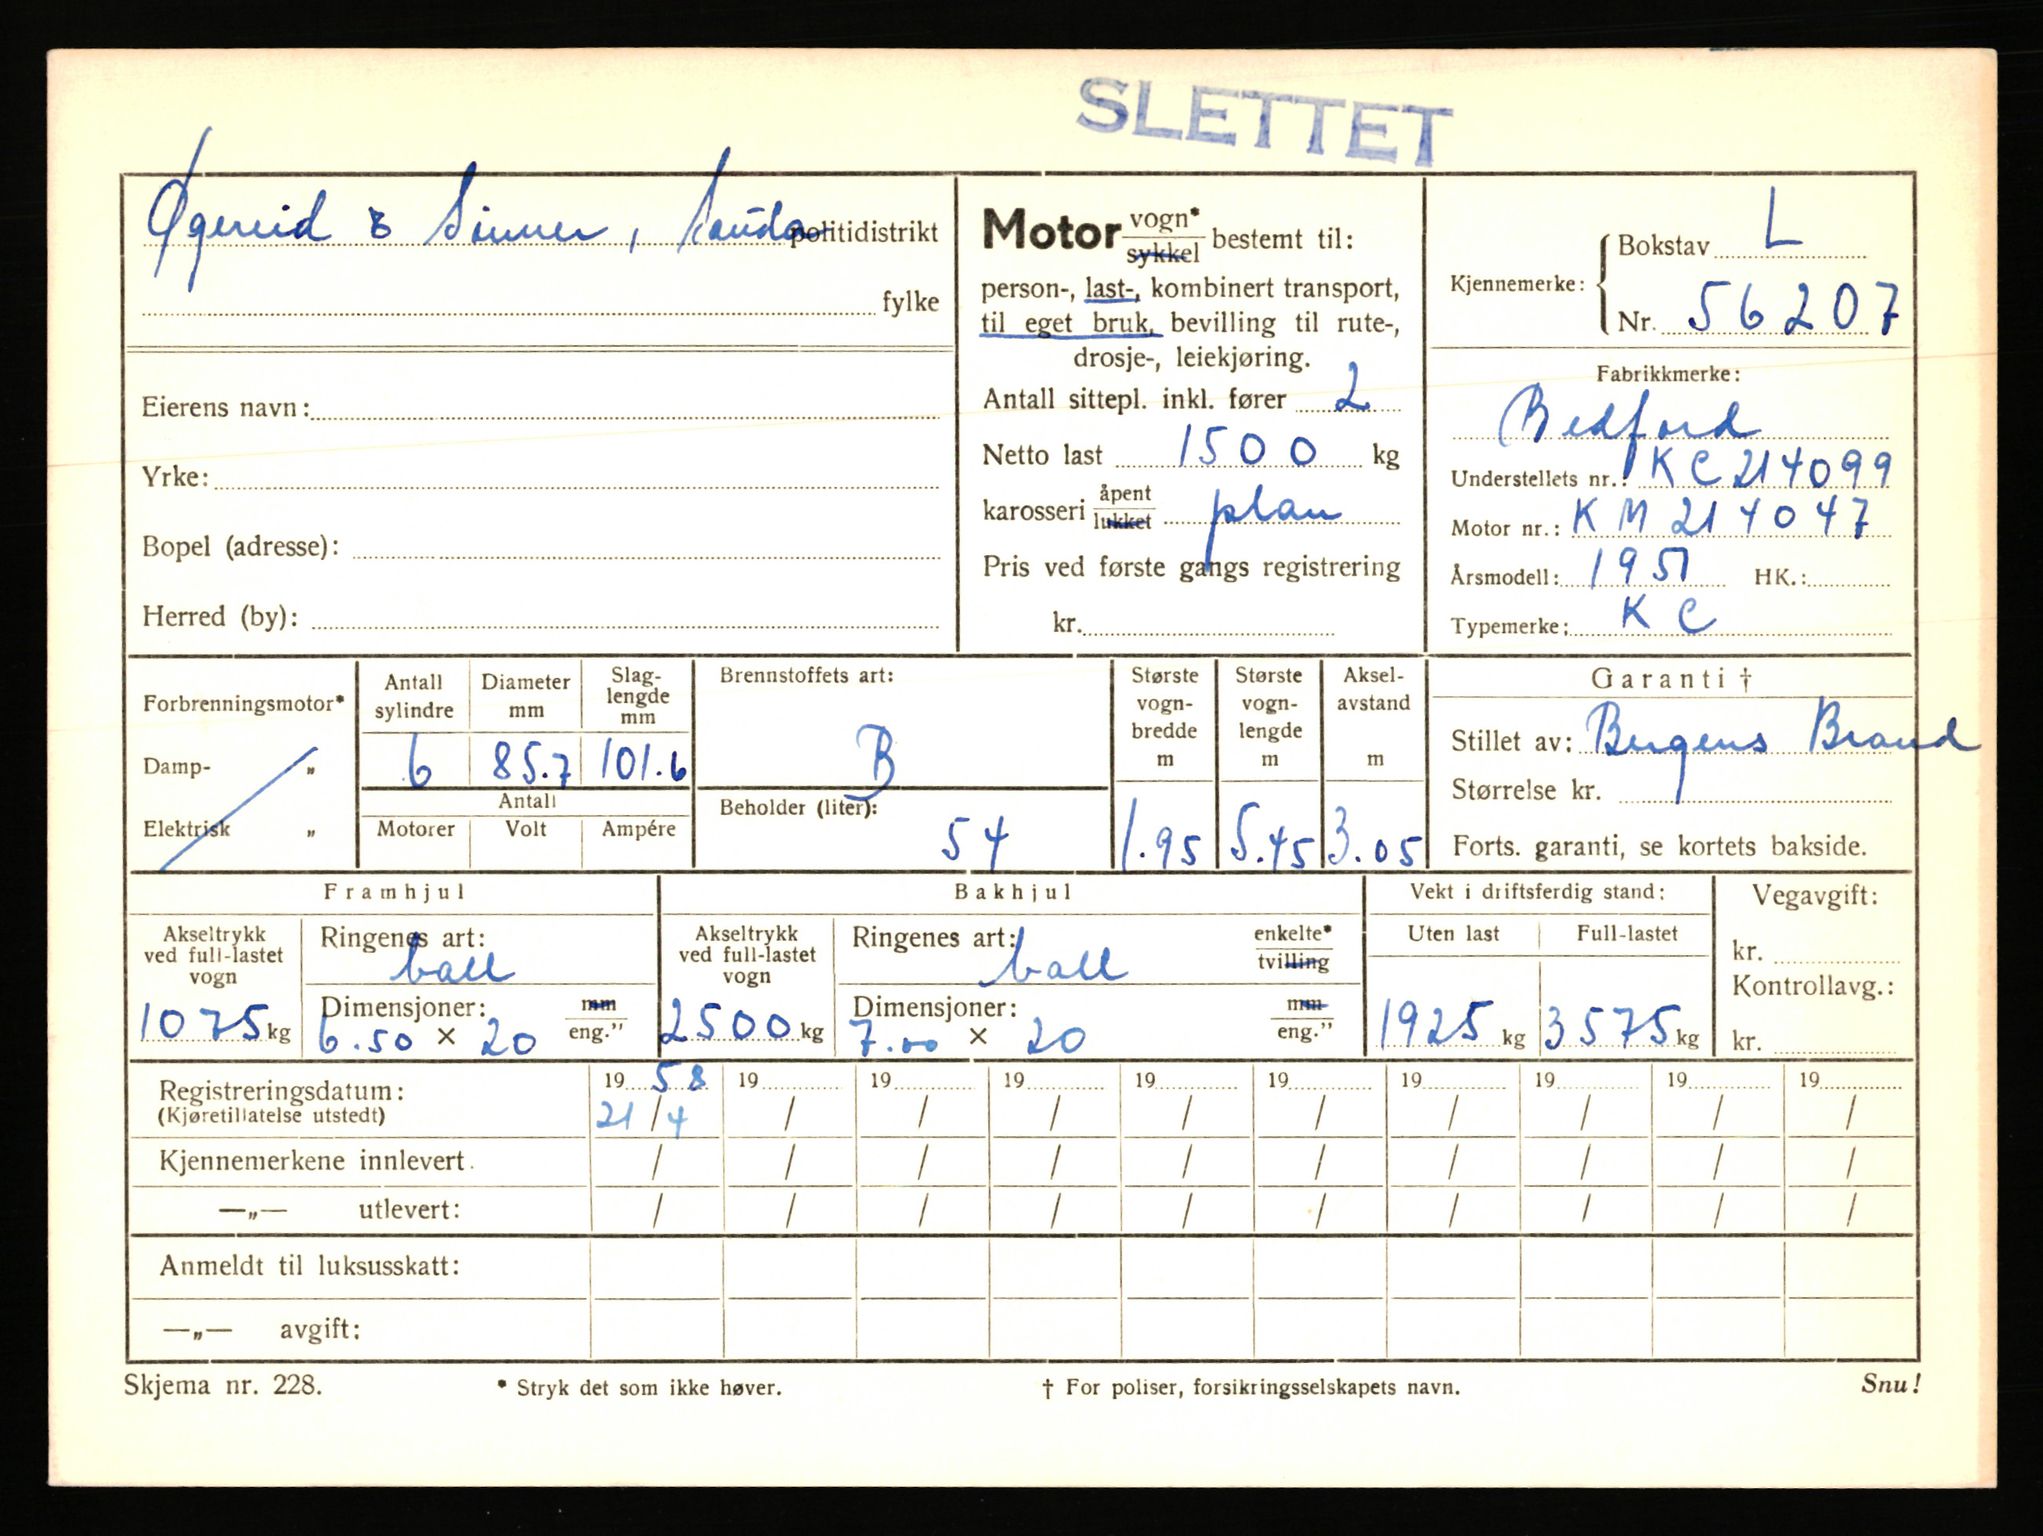 SLETTET
Øgereid & Sinner, Sauda politidistrikt
fylke
Eierens navn:
Yrke:
Bopel (adresse):
Herred (by):
Motor vogn* / sykkel bestemt til:
person-, last-, kombinert transport,
til eget bruk, bevilling til rute-,
drosje-, leiekjøring.
Antall sittepl. inkl. fører 2
Netto last 1500 kg
karosseri åpent / lukket plan
Pris ved første gangs registrering
kr.
Kjennemerke: Bokstav L
Nr. 56207
Fabrikkmerke:
Bedford
Understellets nr.: KC 214099
Motor nr.: KM 214047
Årsmodell: 1951 HK.:
Typemerke: KC
Forbrenningsmotor*
Damp- „
Elektrisk „
Antall sylindre Diameter mm Slag-lengde mm
6 85.7 101.6
Antall
Motorer Volt Ampére
Brennstoffets art:
B
Beholder (liter):
54
Største vogn-bredde m
1.95
Største vogn-lengde m
5.45
Aksel-avstand m
3.05
Garanti †
Stillet av: Bergens Brand
Størrelse kr.
Forts. garanti, se kortets bakside.
Framhjul
Akseltrykk ved full-lastet vogn
1075 kg
Ringenes art:
ball
Dimensjoner: mm / eng."
6.50 × 20
Bakhjul
Akseltrykk ved full-lastet vogn
2500 kg
Ringenes art: enkelte* / tvilling
ball
Dimensjoner: mm / eng."
7.00 × 20
Vekt i driftsferdig stand:
Uten last Full-lastet
1925 kg 3575 kg
Vegavgift:
kr.
Kontrollavg.:
kr.
Registreringsdatum: 19 58 19 19 19 19 19 19 19 19 19
(Kjøretillatelse utstedt) 21/4 / / / / / / / / /
Kjennemerkene innlevert. / / / / / / / / / /
—„— utlevert: / / / / / / / / / /
Anmeldt til luksusskatt:
—„— avgift:
Skjema nr. 228. * Stryk det som ikke høver. † For poliser, forsikringsselskapets navn. Snu!